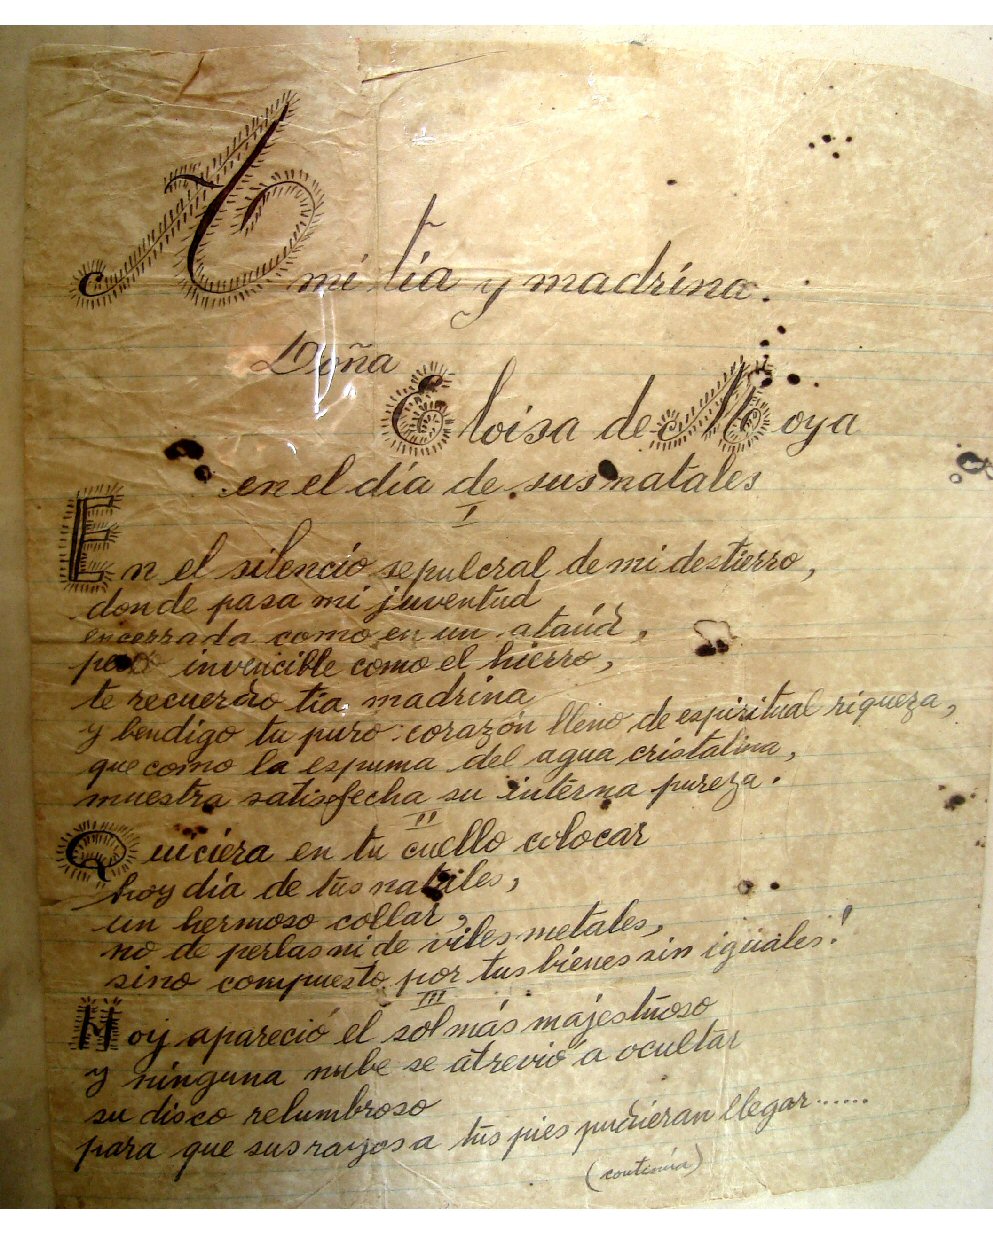 A mi tía y madrina.
Doña
Eloisa de Moya
en el día de sus natales
I
En el silencio sepulcral de mi destierro,
donde pasa mi juventud
encerrada como en un ataúd,
pero invencible como el hierro,
te recuerdo tía madrina
y bendigo tu puro corazón lleno de espiritual riqueza,
que como la espuma del agua cristalina,
muestra satisfecha su interna pureza.
II
Quiciéra en tu cuello colocar
hoy día de tus natales,
un hermoso collar,
no de perlas ni de viles metales,
sino compuesto por tus bienes sin iguales!
III
Hoy apareció el sol más majestuoso
y ninguna nube se atrevió a ocultar
su disco relumbroso
para que sus rayos a tus pies pudieran llegar......
(continúa)